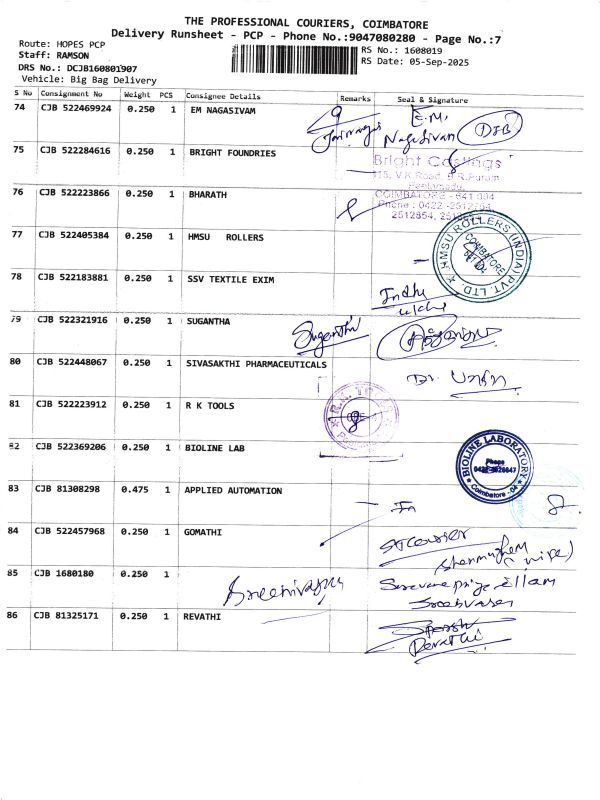 THE PROFESSIONAL COURIERS, COIMBATORE
Delivery Runsheet - PCP - Phone No.:9047080280 - Page No.:7
Route: HOPES PCP
Staff: RAMSON
DRS No.: DCJB160801907
Vehicle: Big Bag Delivery
RS No.: 1608019
RS Date: 05-Sep-2025
S No Consignment No Weight PCS Consignee Details Remarks Seal & Signature
74 CJB 522469924 0.250 1 EM NAGASIVAM
E.M.
Nagasivan
75 CJB 522284616 0.250 1 BRIGHT FOUNDRIES
Bright Castings
COIMBATORE - 641 004
Phone : 0422 -2512754,
76 CJB 522223866 0.250 1 BHARATH
77 CJB 522405384 0.250 1 HMSU ROLLERS
HMSU ROLLERS (INDIA) PVT. LTD.
COIMBATORE
78 CJB 522183881 0.250 1 SSV TEXTILE EXIM
79 CJB 522321916 0.250 1 SUGANTHA
80 CJB 522448067 0.250 1 SIVASAKTHI PHARMACEUTICALS
81 CJB 522223912 0.250 1 R K TOOLS
82 CJB 522369206 0.250 1 BIOLINE LAB
BIOLINE LABORATORY
Phone
Coimbatore - 04
83 CJB 81308298 0.475 1 APPLIED AUTOMATION
84 CJB 522457968 0.250 1 GOMATHI
85 CJB 1680180 0.250 1
86 CJB 81325171 0.250 1 REVATHI
Revathi